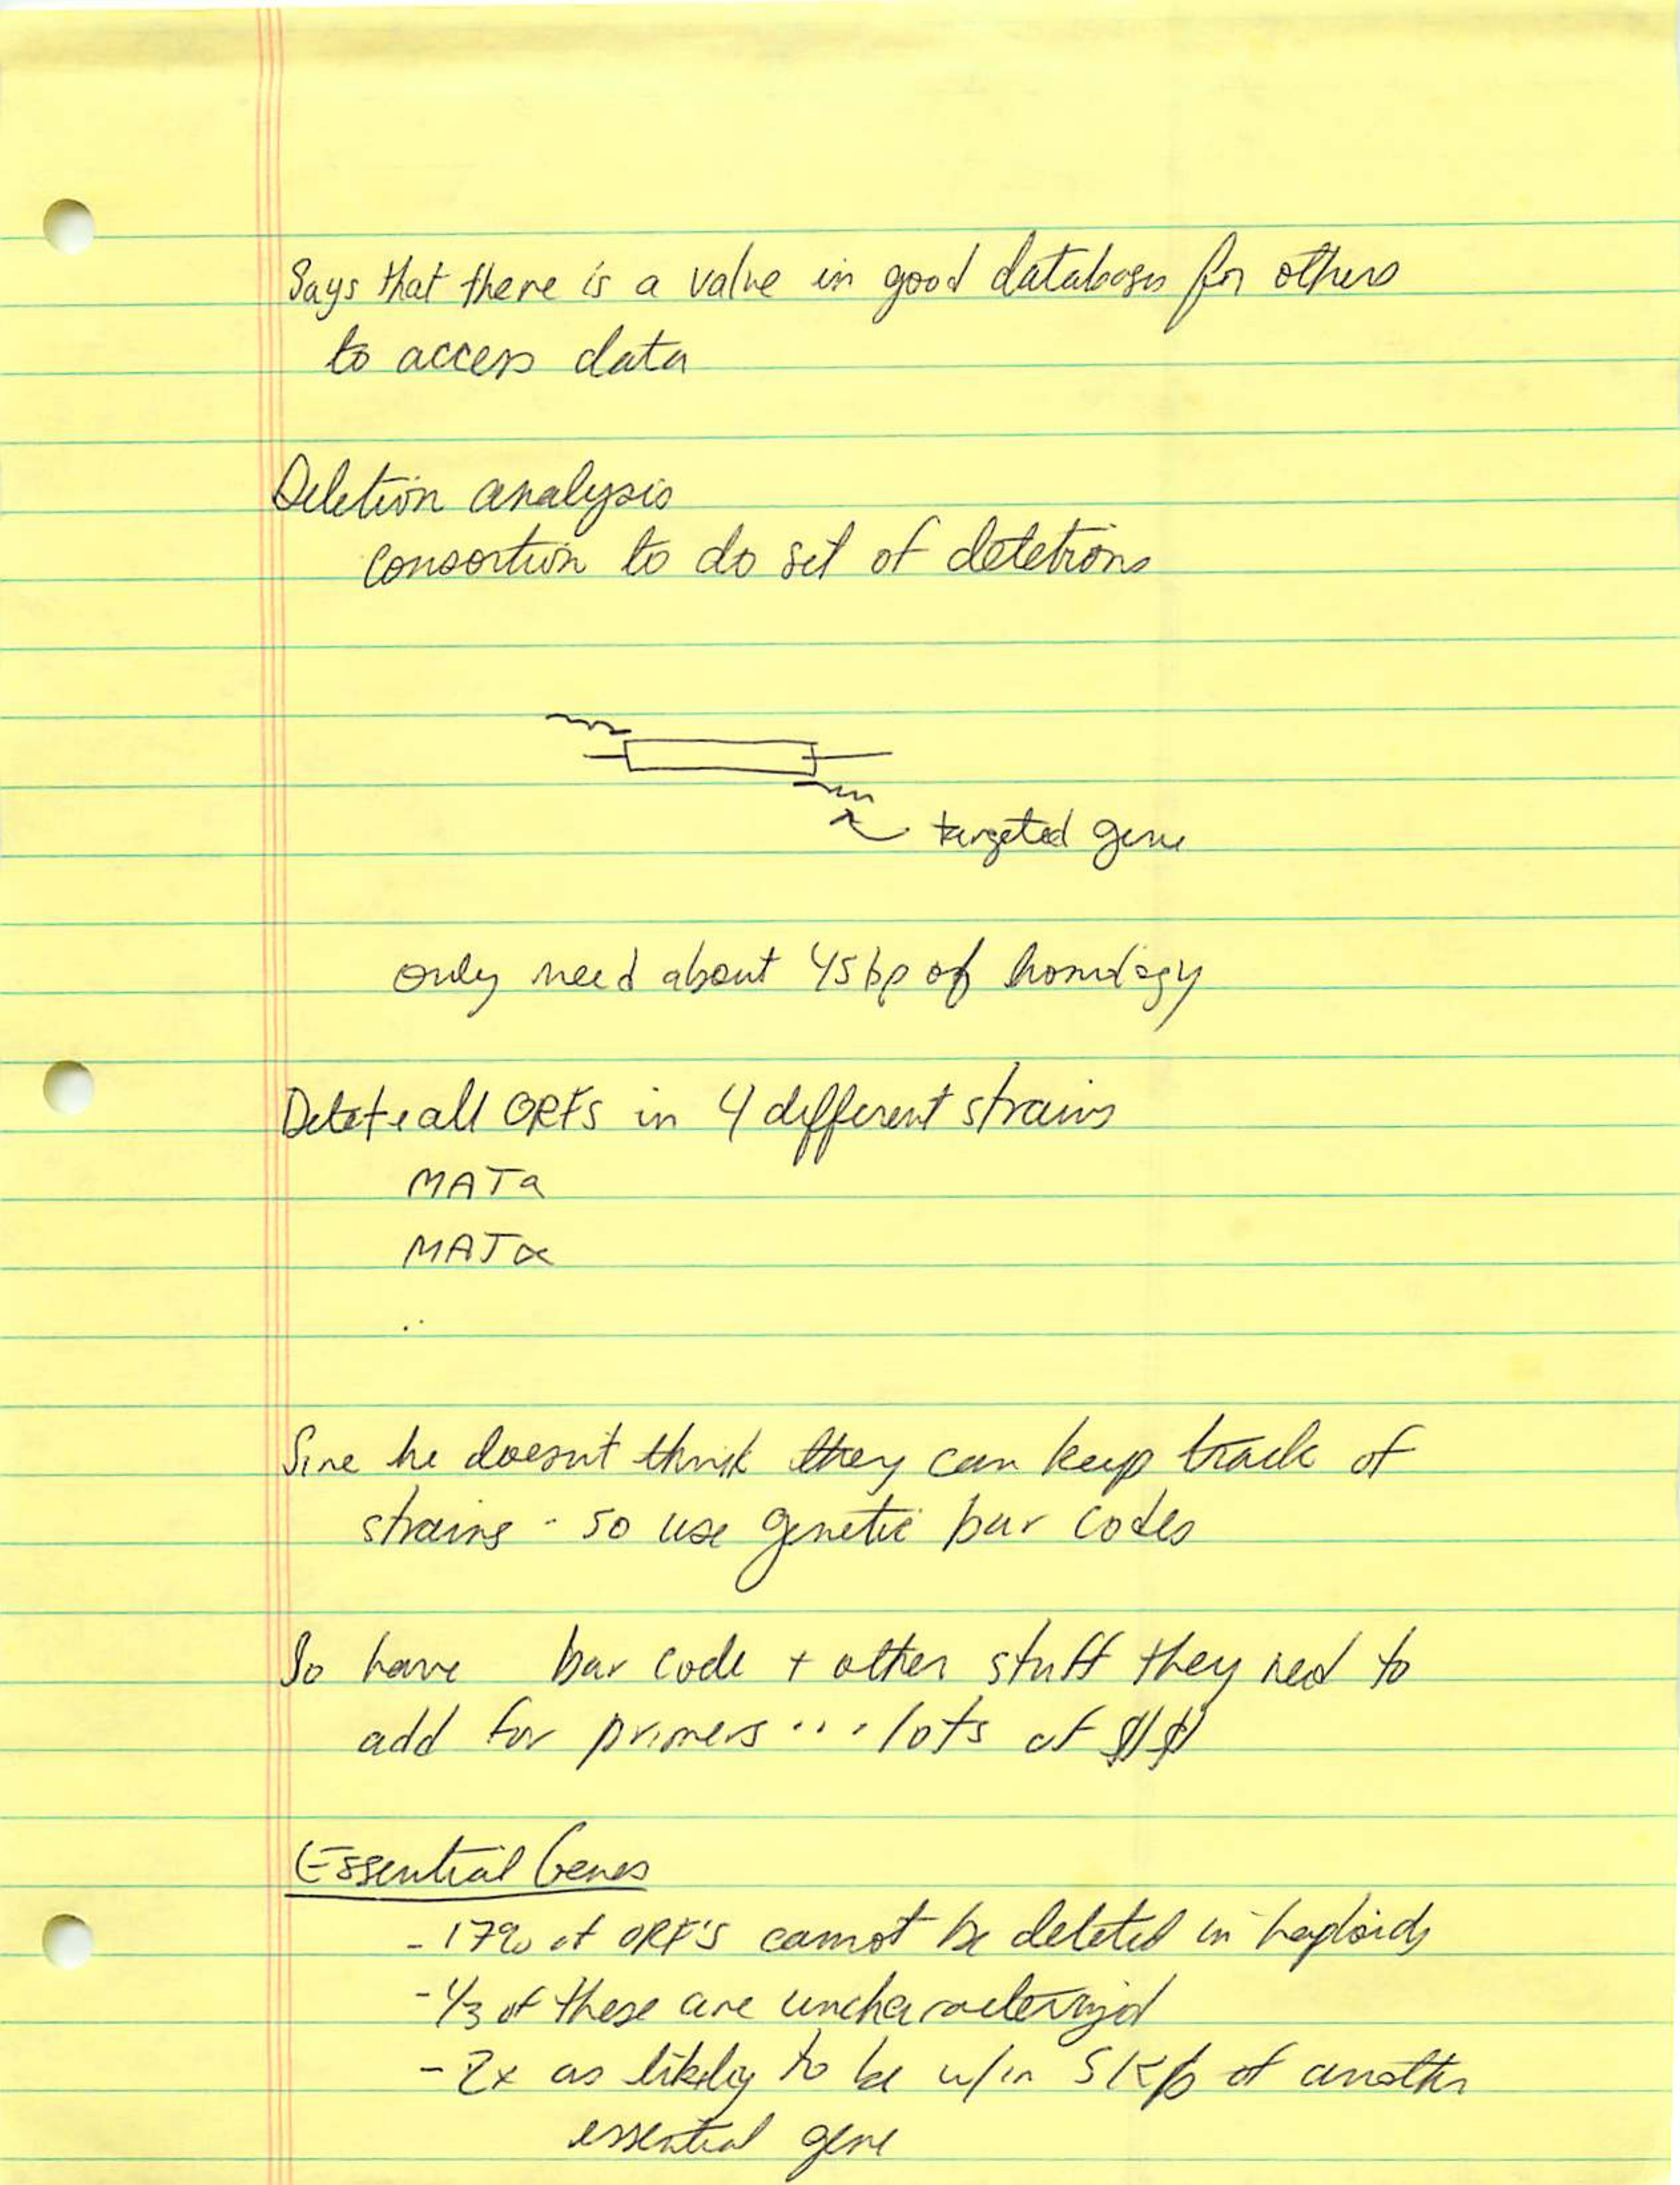 Says that there is a value in good databases for others
to access data
Deletion analysis
consortion to do set of deletions
targeted gene
only need about 45bp of homology
Delete all ORFs in 4 different strains
MATa
MATα
..
Sine he doesn't think they can keep track of
strains - so use genetic bar codes
So have bar code + other stuff they need to
add for primers ... lots of $$
Essential Genes
- 17% of ORF's cannot be deleted in haploids
- 1/3 of these are uncharacterized
- 2x as likely to be w/in 5 Kb of another
essential gene